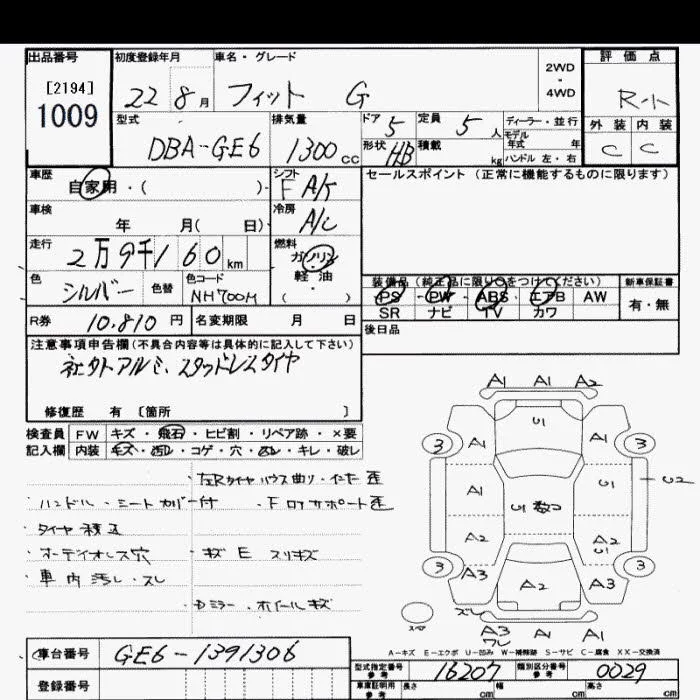 出品番号 初度登録年月 車名・グレード 2WD・4WD 評価点
[2194]
1009
22 8月 フィット G R-ト
型式 排気量 ドア 5 定員 5人 ディーラー・並行 外装 内装
DBA-GE6 1300cc 形状 HB 積載 kg モデル年式 年 C C
ハンドル 左・右
車歴 シフト セールスポイント (正常に機能するものに限ります)
自家用・( ) F A/
車検 冷房
年 月( 日) A/C
走行 燃料
2万9千160km ガソリン
軽油
色 色替 色コード ( )
シルバー NH700M
装備品 (純正品に限り○をつけてください) 新車保証書
PS・PW・ABS・エアB AW 有・無
SR ナビ TV カワ
R券 10,810円 名変期限 月 日 後日品
注意事項申告欄(不具合内容等は具体的に記入して下さい)
社外アルミ、スタッドレスタイヤ
修復歴 有 [箇所 ]
検査員 FW キズ・飛石・ヒビ割・リペア跡・×要
記入欄 内装 キズ・汚れ・コゲ・穴・スレ・キレ・破レ
ハンドル・シートカバー付
タイヤ積込
オーディオレス穴 ・キズ E スリキズ
車内汚レ・スレ
・Dミラー・ホイールキズ
A1 A1 A2
U1
3 A1 A1 3
A1 U1 U2
U1
A2 A2
U1
3 A3 A2 A3 3
スペア
A3 A1 A1
A-キズ E-エクボ U-凹み W-補修跡 S-サビ C-腐食 XX-交換済
車台番号 GE6-1391306
登録番号
型式指定番号 参考 16207 類別区分番号 参考 0029
車庫証明用 参考 長さ cm 幅 cm 高さ cm